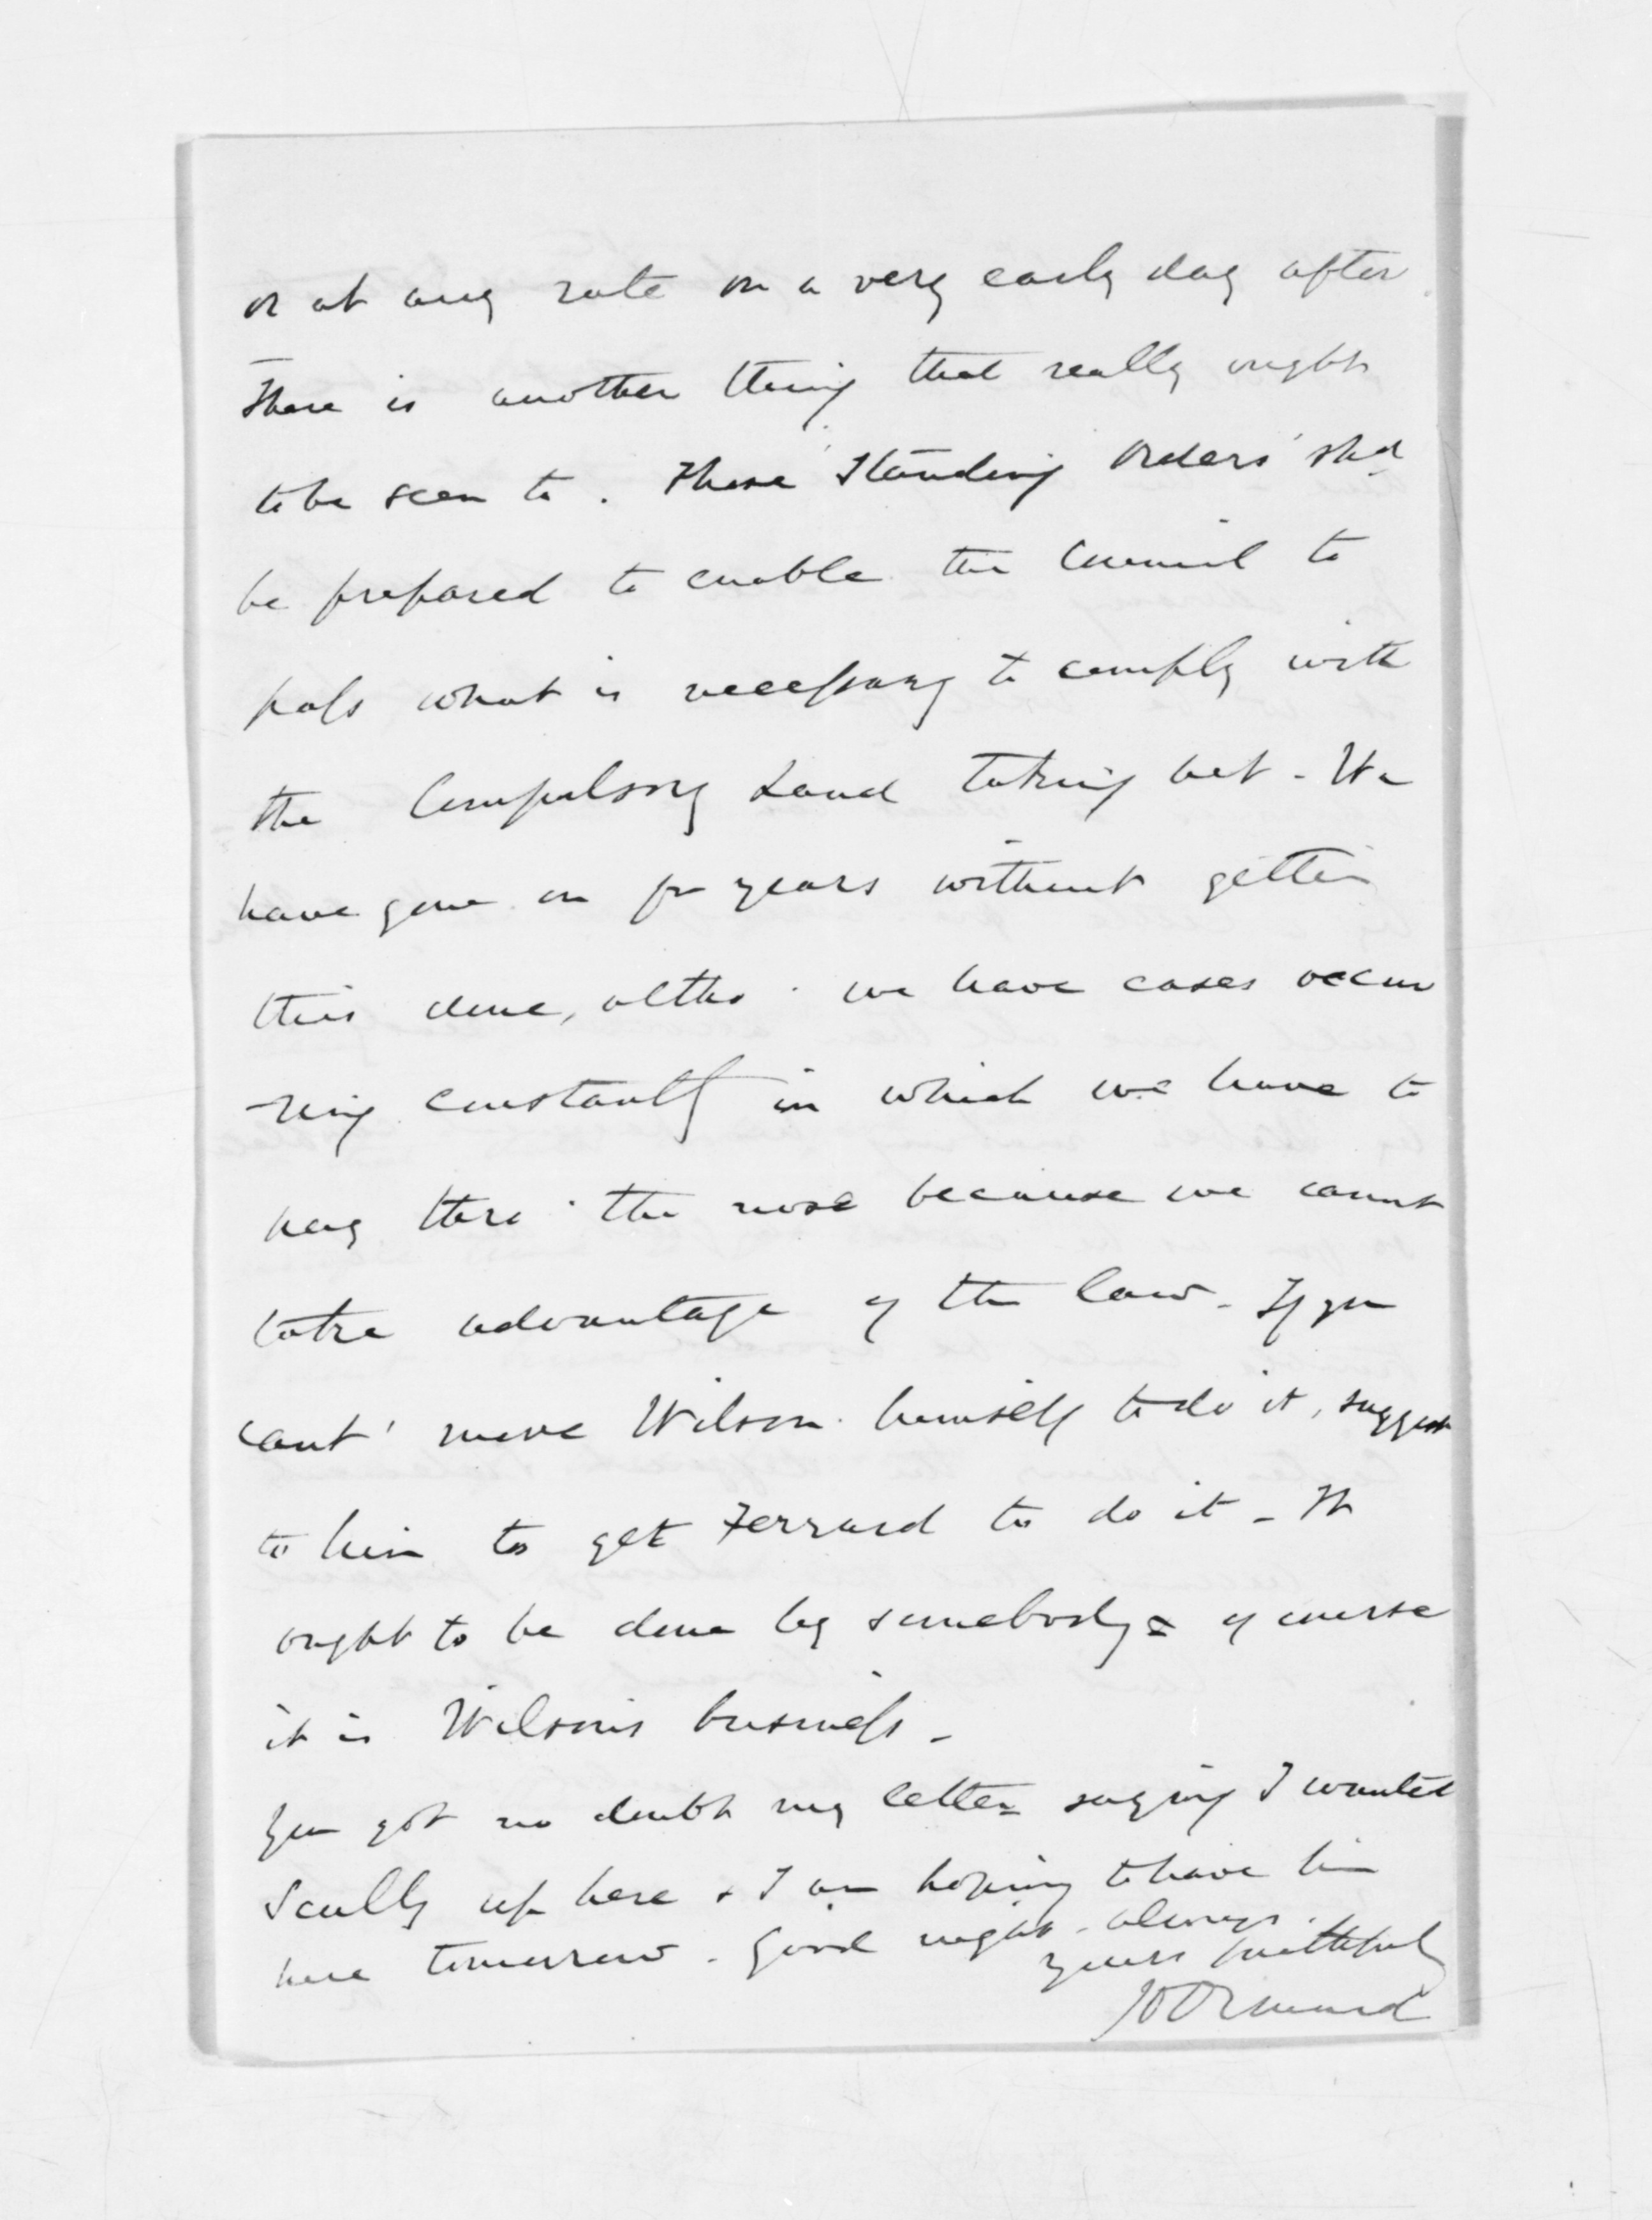 or at any rate on a very early day after
There is another thing that really ought
to be seen to. Those 'Standing Orders' shd
be prepared to enable the Council to
pass what is necessary to comply with
the Compulsory Land Taking Act - We
have gone on for years without gettin
this done, altho' we have cases occur
ring constantly in which we have to
pay thro' the nose because we cannot
take advantage of the law - If you
cant' move Wilson himself to do it, suggest
to him to get Ferrard to do it - It
ought to be done by somebody & of course
it is Wilson's business -
You got no doubt my letter saying I wanted
Scully up here & I am hoping to have him
here tomorrow. Good night - always
yours faithfully
JD Ormond